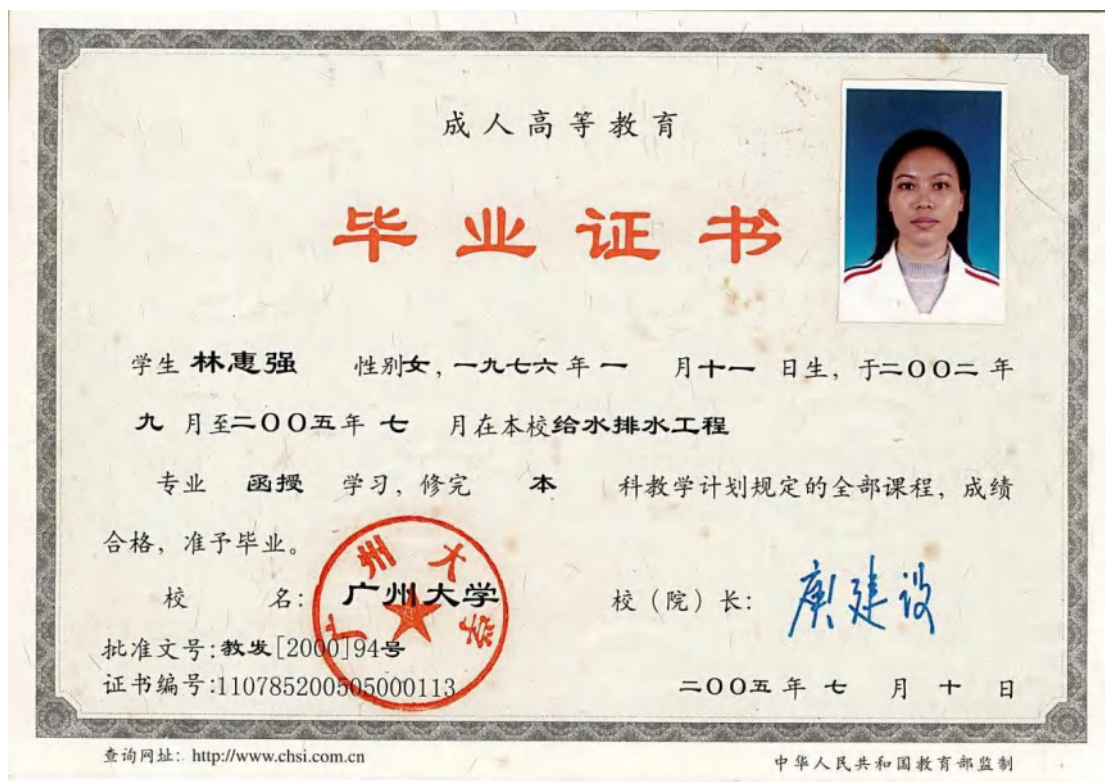 成人高等教育
毕业证书
学生 林惠强 性别女，一九七六年一 月十一 日生，于二〇〇二年
九 月至二〇〇五年 七 月在本校给水排水工程
专业 函授 学习，修完 本 科教学计划规定的全部课程，成绩
合格，准予毕业。
校 名：广州大学 校（院）长：庾建设
广州大学
批准文号：教发[2000]94号
证书编号：110785200505000113 二〇〇五年七 月 十 日
查询网址：http://www.chsi.com.cn 中华人民共和国教育部监制